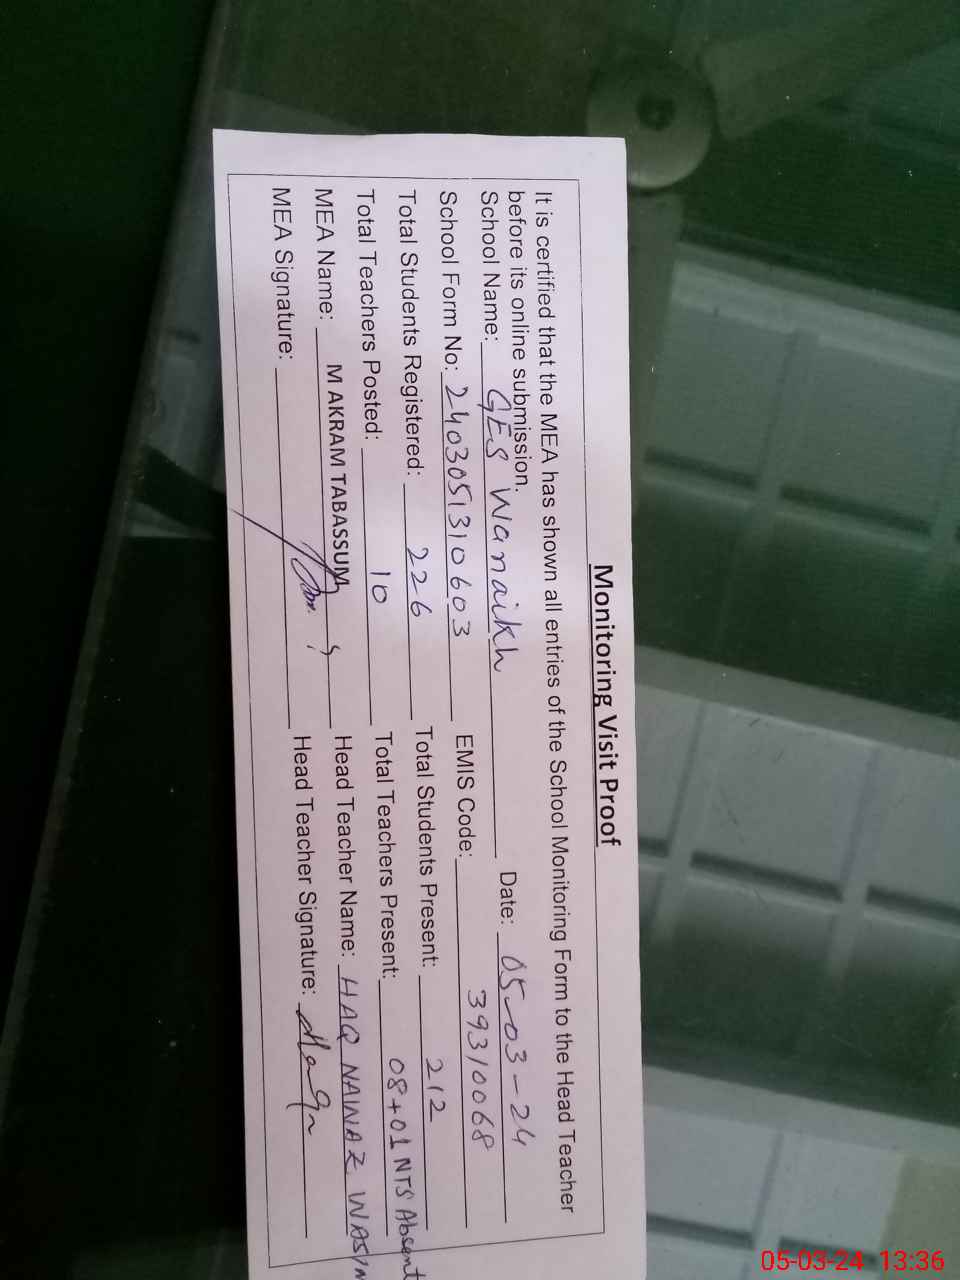 Monitoring Visit Proof
It is certified that the MEA has shown all entries of the School Monitoring Form to the Head Teacher
before its online submission.
School Name: GES Wanaikh Date: 05-03-24
School Form No: 2403051310603 EMIS Code: 39310068
Total Students Registered: 226 Total Students Present: 212
Total Teachers Posted: 10 Total Teachers Present: 08+01 NTS Absent
MEA Name: M AKRAM TABASSUM Head Teacher Name: HAQ NAWAZ
MEA Signature: Head Teacher Signature:
05-03-24 13:36